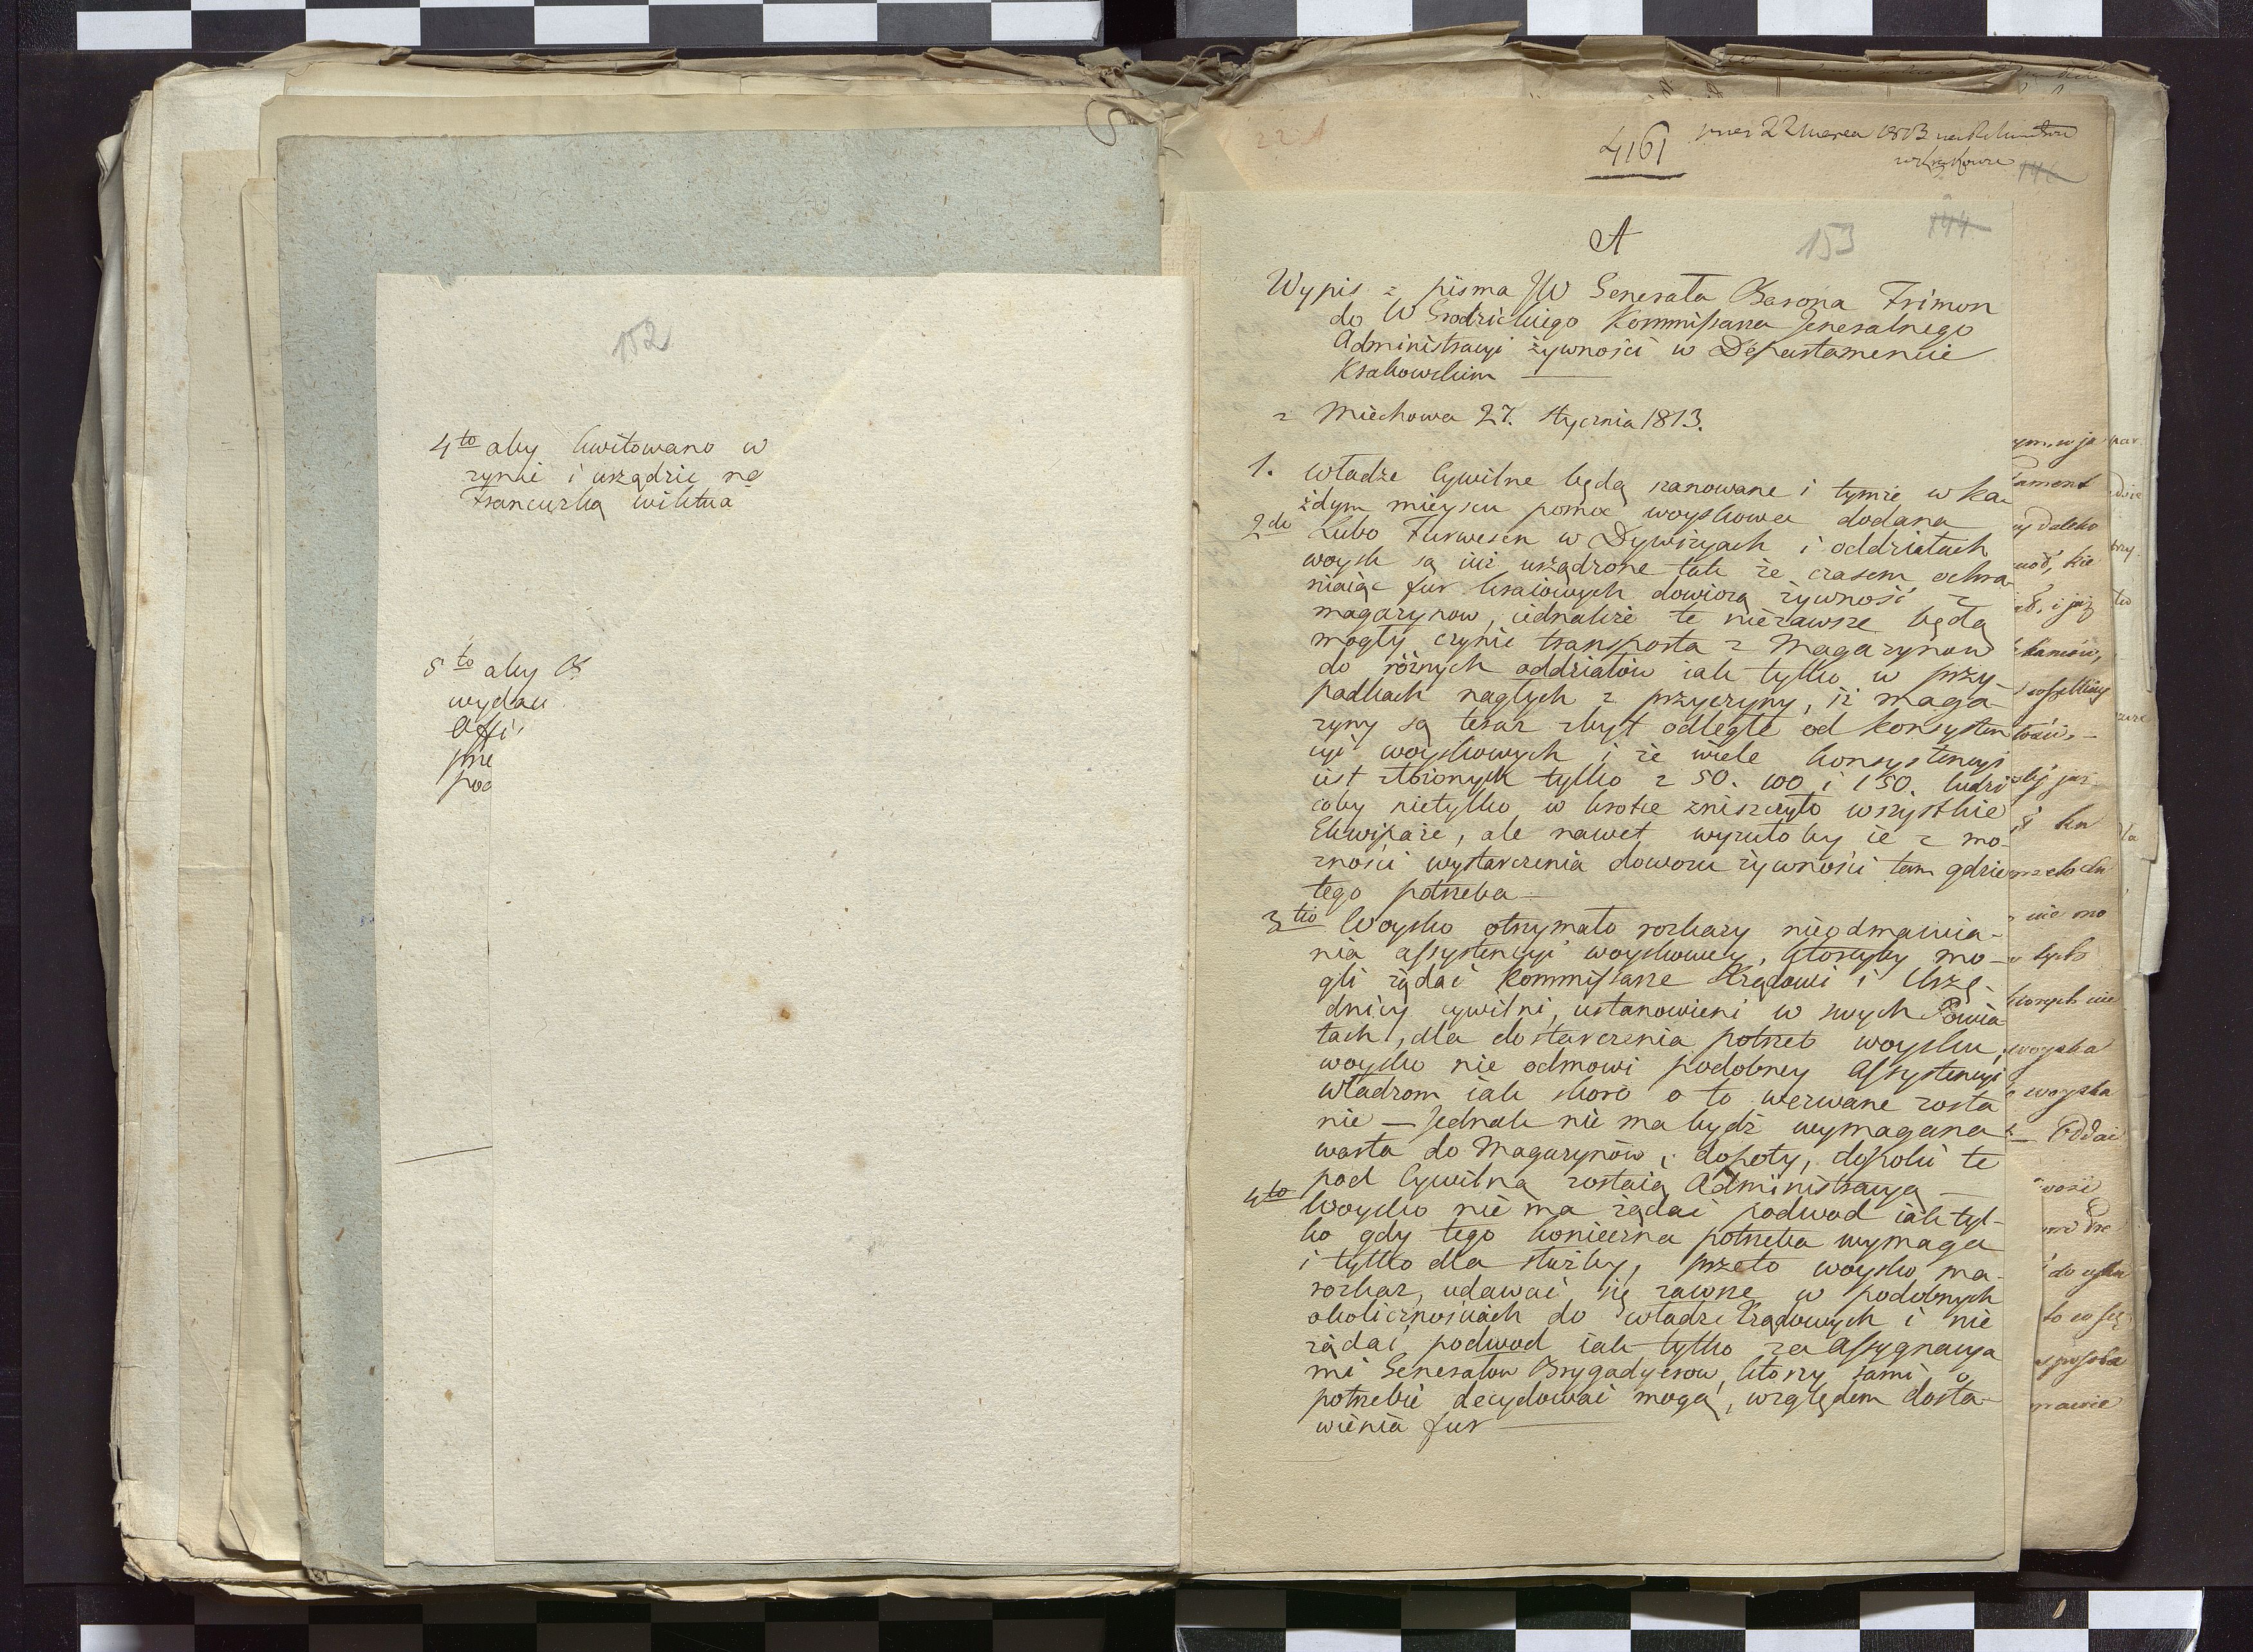 152
4to aby kwitowano w
zynie i urządzić na
Francuzką wiktua
5to aby Of
wydau
Offi
pne
poc
221
4161
pres 22 Marca 1813
146
A
153
144
Wypis z pisma JW Generała Barona Frimon
do W Grodzickiego Kommissarza Jeneralnego
Administracyi żywności w Departamencie
Krakowskim —
z Miechowa 27. stycznia 1813.
1. władze Cywilne będą szanowane i tymże w ka-
żdym mieyscu pomoc woyskowa dodana
2do Lubo Furwesen w Dywizyach i oddziałach
woysk są iuż urządzone tak że czasem ochra-
niaiąc fur kraiowych dowiozą żywność z
magazynow, iednakże te niezawsze będą
mogły czynić transporta z Magazynow
do różnych oddziałów iak tylko w przy-
padkach nagłych z przyczyny, iż maga-
zyny są teraz zbyt odległe od konsysten
cyi woyskowych i że wiele konsystencyi
iest złożonych tylko z 50. 100 i 150. ludzi
coby nietylko w krotce zniszczyło wszystkie
Ekwipaże, ale nawet wyzuło by ie z mo-
żności wystarczenia dowozu żywności tam gdzie
tego potrzeba —
3tio Woysko otrzymało rozkazy nieodmawia-
nia assystencyi woyskowey, ktoreyby mo-
gli żądać Kommissarze Rządowi i Urzę-
dnicy cywilni, ustanowieni w swych Powia
tach, dla dostarczenia potrzeb woysku,
woysko nie odmowi podobney Assystencyi
władzom iak skoro o to wezwane zosta
nie — Jednak nie ma bydź wymagana
warta do Magazynów, dopoty, dopoki te
pod Cywilną zostaią Administracyą —
4to Woysko nie ma żądać podwod iak tyl-
ko gdy tego konieczna potrzeba wymaga
i tylko dla służby, przeto woysko ma
rozkaz, udawać się zawsze w podobnych
okolicznościach do władz Rządowych i nie
żądać podwod iak tylko za Assygnacya
mi Generałow Brygadyerow, ktorzy sami o
potrzebie decydować mogą, względem dosta-
wienia fur —
ym, w ja
ament
y daleko
woyska
woyska
Oddai
nie mo
tych
ktorych nie